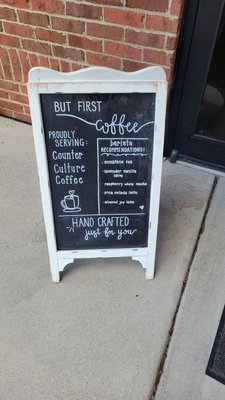 BUT FIRST
Coffee
PROUDLY
SERVING:
Counter
Culture
Coffee
barista
RECOMMENDATIONS:
• sunshine tea
• lavender vanilla latte
• raspberry white mocha
• almond joy latte
HAND CRAFTED
just for you